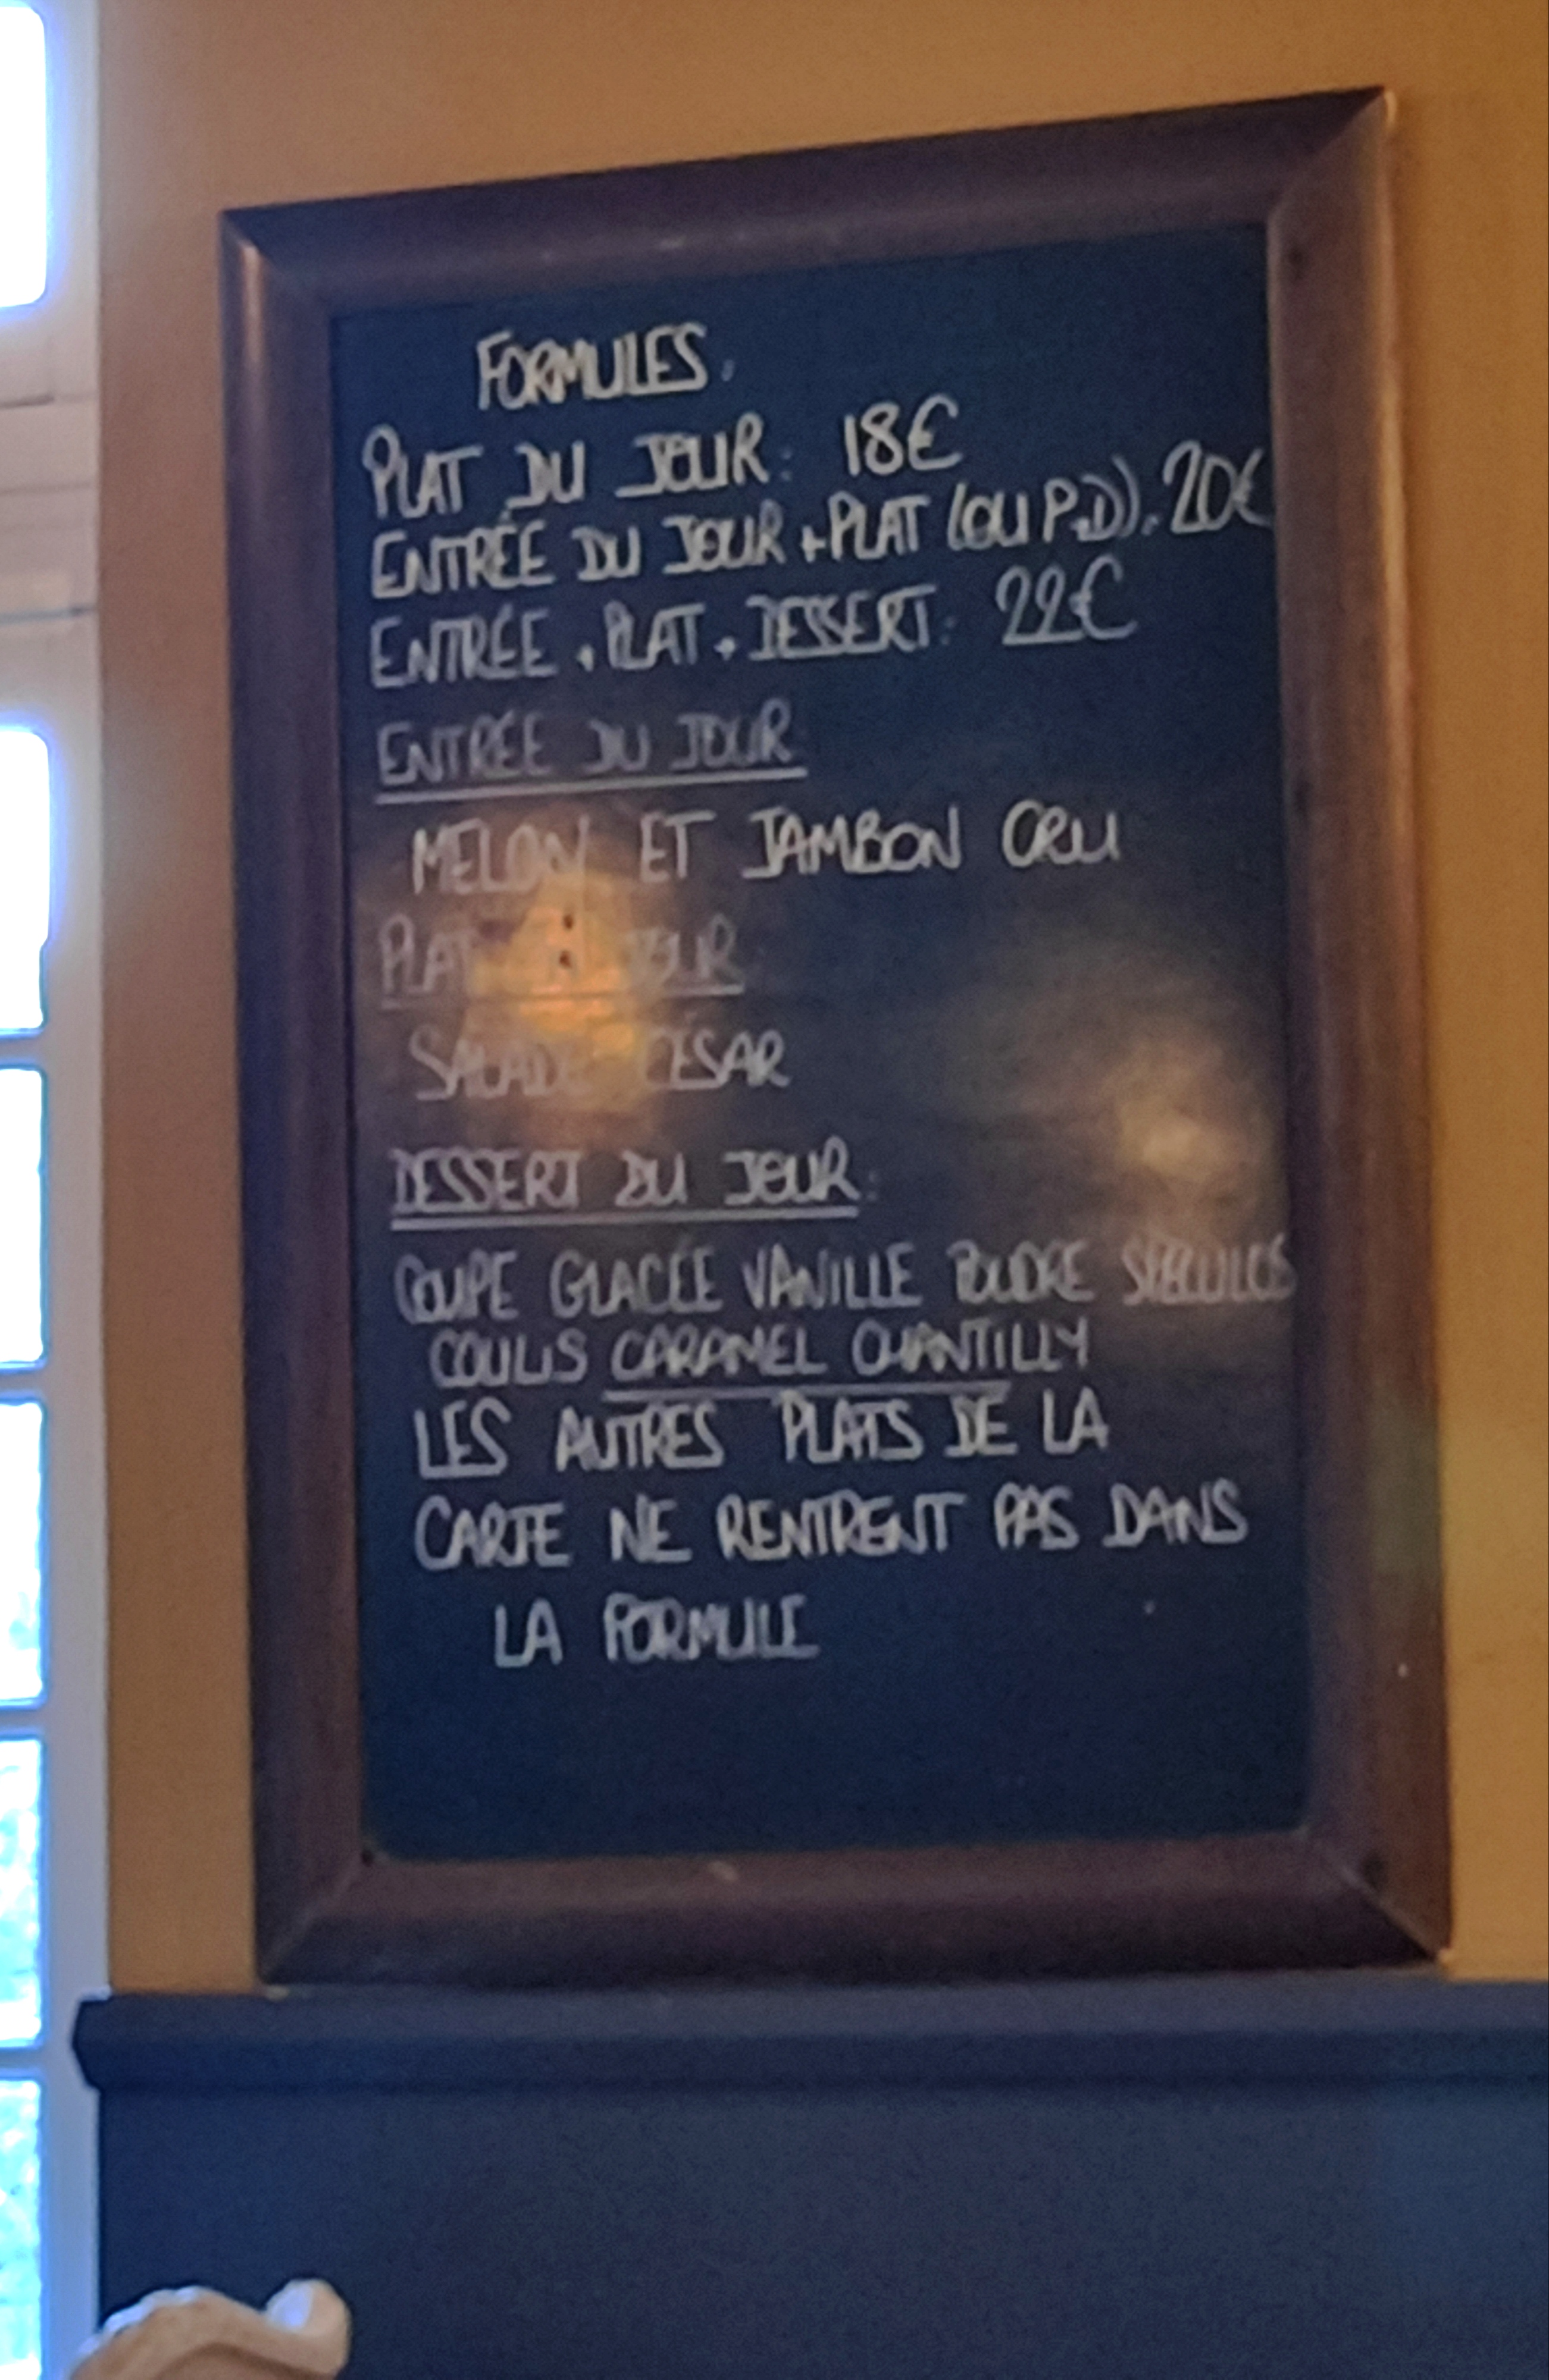 FORMULES:
PLAT DU JOUR: 18€
ENTRÉE DU JOUR + PLAT (OU P.D): 20€
ENTRÉE + PLAT + DESSERT: 22€
ENTRÉE DU JOUR
MELON ET JAMBON CRU
PLAT JOUR
SALADE CÉSAR
DESSERT DU JOUR:
COUPE GLACÉE VANILLE POUDRE SPECULOS
COULIS CARAMEL CHANTILLY
LES AUTRES PLATS DE LA
CARTE NE RENTRENT PAS DANS
LA FORMULE